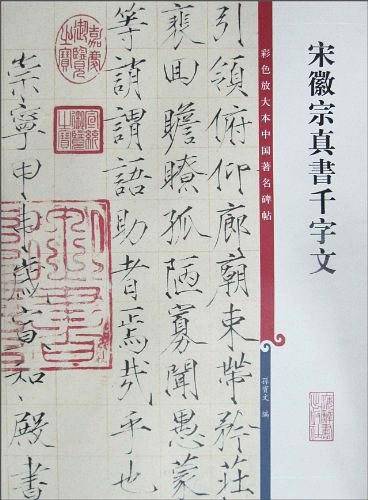 宋徽宗真書千字文
彩色放大本中国著名碑帖
孫寶文 編
引領俯仰廊廟束帶矜莊
裵回瞻瞭孤陋寡聞愚蒙
等誚謂語助者焉哉乎也
崇寧甲申歲宣和殿書
嘉慶御覽之寶
宣統御覽之寶